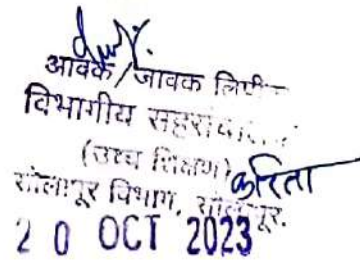 आवक / जावक लिपीक
विभागीय सहसंचालक
(उच्च शिक्षण) करिता
सोलापूर विभाग, सोलापूर.
20 OCT 2023